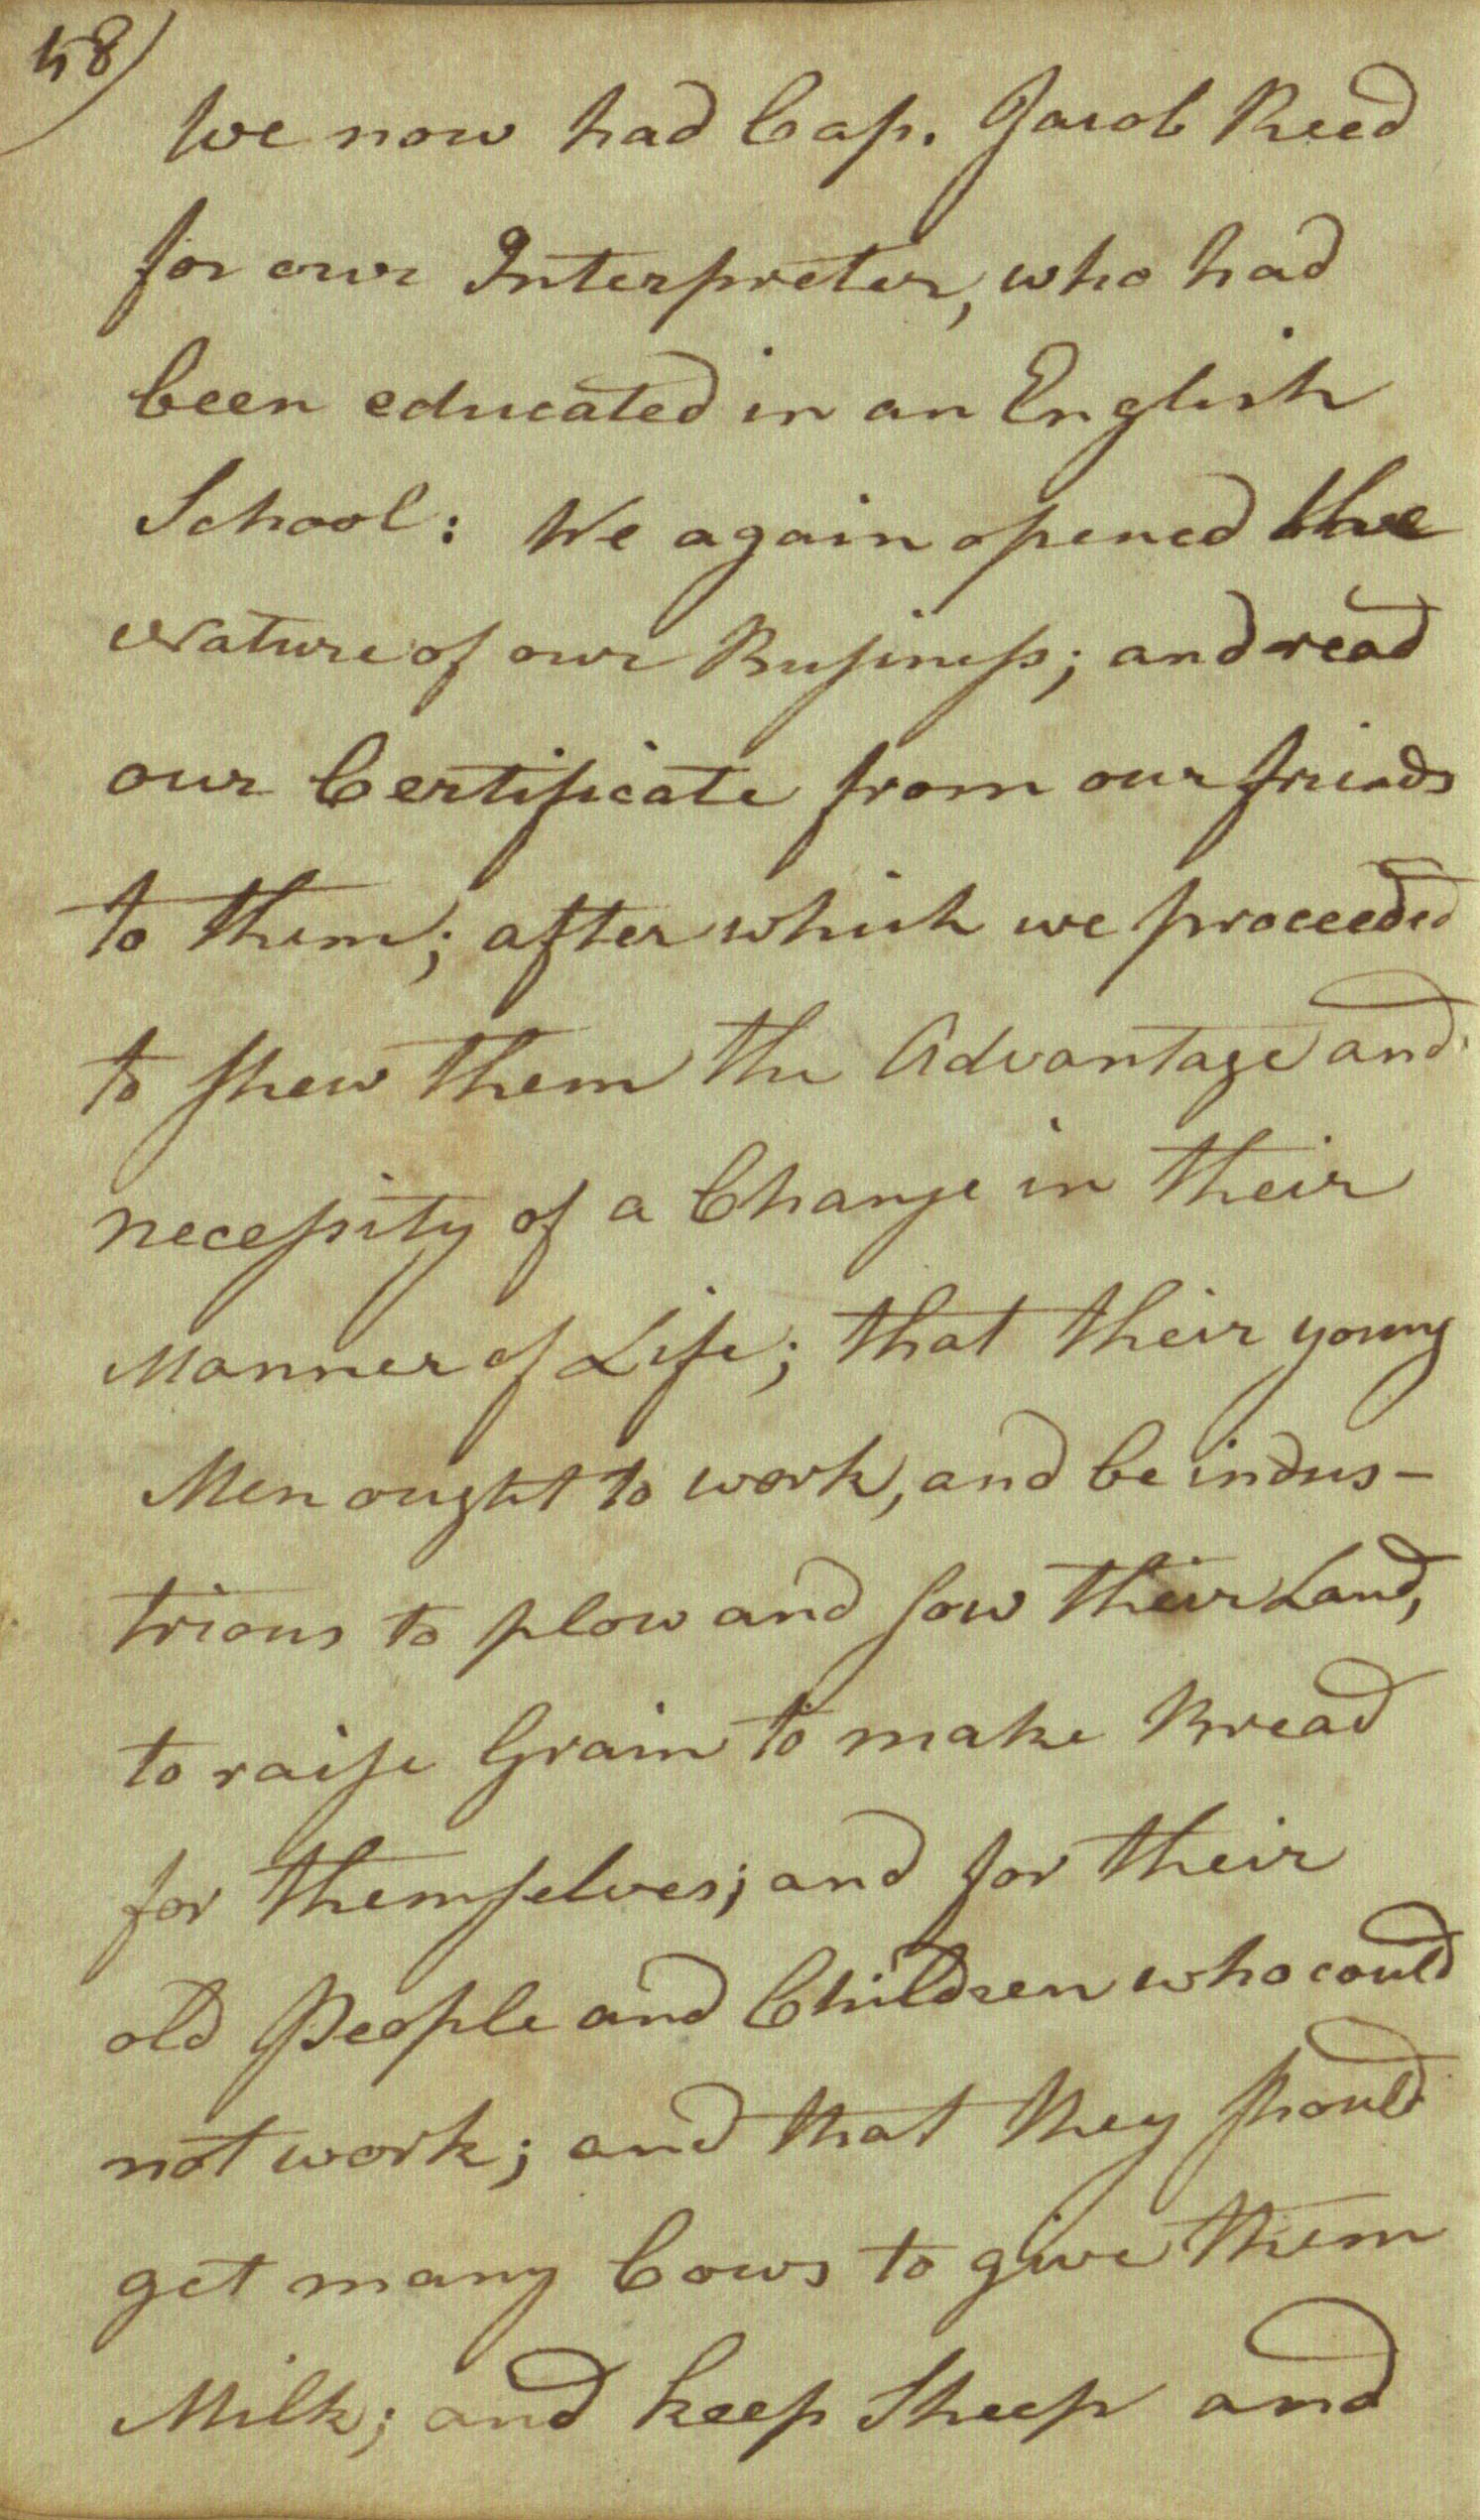 58)
We now had Cap. Jacob Reed
for our Interpreter, who had
been educated in an English
School: We again opened the
Nature of our Busineſs; and read
our Certificate from our friends
to them; after which we proceeded
to shew them the Advantage and
neceſsity of a Change in their
Manner of Life; that their young
Men ought to work, and be indus-
trious to plow and sow their Land,
to raise Grain to make Bread
for themselves; and for their
old People and Children who could
not work; and that they should
get many Cows to give them
Milk; and keep Sheep and